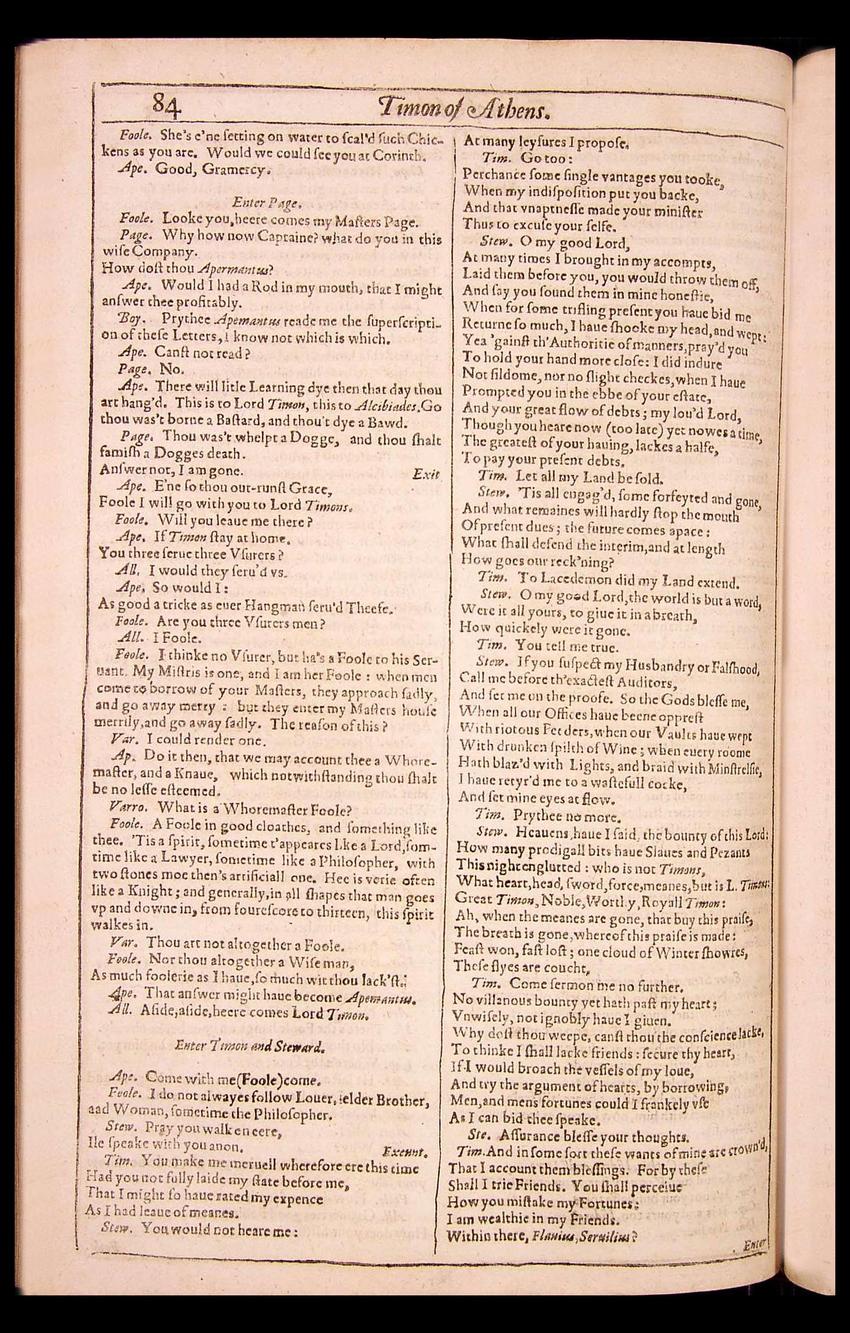 84
Timon of Athens.
Foole. She's e'ne ſetting on water to ſcal'd ſuch Chic-
kens as you are. Would we could ſee you at Corinth.
Ape. Good, Gramercy.
Enter Page.
Foole. Looke you, heere comes my Maſters Page.
Page. Why how now Captaine? what do you in this
wiſe Company.
How doſt thou Apermantus?
Ape. Would I had a Rod in my mouth, that I might
anſwer thee profitably.
Boy. Prythee Apemantus reade me the ſuperſcripti-
on of theſe Letters, I know not which is which.
Ape. Canſt not read?
Page. No.
Ape. There will litle Learning dye then that day thou
art hang'd. This is to Lord Timon, this to Alcibiades. Go
thou was't borne a Baſtard, and thou't dye a Bawd.
Page. Thou was't whelpt a Dogge, and thou ſhalt
famiſh a Dogges death.
Anſwer not, I am gone. Exit
Ape. E'ne ſo thou out-runſt Grace,
Foole I will go with you to Lord Timons.
Foole. Will you leaue me there?
Ape. If Timon ſtay at home.
You three ſerue three Vſurers?
All. I would they ſeru'd vs.
Ape. So would I:
As good a tricke as euer Hangman ſeru'd Theefe.
Foole. Are you three Vſurers men?
All. I Foole.
Foole. I thinke no Vſurer, but ha's a Foole to his Ser-
uant. My Miſtris is one, and I am her Foole: when men
come to borrow of your Maſters, they approach ſadly,
and go away merry: but they enter my Maſters houſe
merrily, and go away ſadly. The reaſon of this?
Var. I could render one.
Ap. Do it then, that we may account thee a Whore-
maſter, and a Knaue, which notwithſtanding thou ſhalt
be no leſſe eſteemed.
Varro. What is a Whoremaſter Foole?
Foole. A Foole in good cloathes, and ſomething like
thee. 'Tis a ſpirit, ſometime t'appeares like a Lord, ſom-
time like a Lawyer, ſometime like a Philoſopher, with
two ſtones moe then's artificiall one. Hee is verie often
like a Knight; and generally, in all ſhapes that man goes
vp and downe in, from foureſcore to thirteen, this ſpirit
walkes in.
Var. Thou art not altogether a Foole.
Foole. Nor thou altogether a Wiſe man,
As much foolerie as I haue, ſo much wit thou lack'ſt.
Ape. That anſwer might haue become Apemantus.
All. Aſide, aſide, heere comes Lord Timon.
Enter Timon and Steward.
Ape. Come with me (Foole) come.
Foole. I do not alwayes follow Louer, elder Brother,
aad Woman, ſometime the Philoſopher.
Stew. Pray you walk eneere,
Ile ſpeake with you anon. Exeunt.
Tim. You make me meruell wherefore ere this time
Had you not fully laide my ſtate before me,
That I might ſo haue rated my expence
As I had leaue of meanes.
Stew. You would not heare me:
At many leyſures I propoſe.
Tim. Go too:
Perchance ſome ſingle vantages you tooke,
When my indiſpoſition put you backe,
And that vnaptneſſe made your miniſter
Thus to excuſe your ſelfe.
Stew. O my good Lord,
At many times I brought in my accompts,
Laid them before you, you would throw them off,
And ſay you found them in mine honeſtie,
When for ſome trifling preſent you haue bid me
Returne ſo much, I haue ſhooke my head, and wept:
Yea 'gainſt th'Authoritie of manners, pray'd you
To hold your hand more cloſe: I did indure
Not ſildome, nor no ſlight checkes, when I haue
Prompted you in the ebbe of your eſtate,
And your great flow of debts; my lou'd Lord,
Though you heare now (too late) yet nowes a time,
The greateſt of your hauing, lackes a halfe,
To pay your preſent debts.
Tim. Let all my Land be ſold.
Stew. 'Tis all engag'd, ſome forfeyted and gone,
And what remaines will hardly ſtop the mouth
Of preſent dues; the future comes apace:
What ſhall defend the interim, and at length
How goes our reck'ning?
Tim. To Lacedemon did my Land extend.
Stew. O my good Lord, the world is but a word,
Were it all yours, to giue it in a breath,
How quickely were it gone.
Tim. You tell me true.
Stew. If you ſuſpect my Husbandry or Falſhood,
Call me before th'exacteſt Auditors,
And ſet me on the proofe. So the Gods bleſſe me,
When all our Offices haue beene oppreſt
With riotous Feeders, when our Vaults haue wept
With drunken ſpilth of Wine; when euery roome
Hath blaz'd with Lights, and braid with Minſtrelſie,
I haue retyr'd me to a waſtefull cocke,
And ſet mine eyes at flow.
Tim. Prythee no more.
Stew. Heauens, haue I ſaid, the bounty of this Lord:
How many prodigall bits haue Slaues and Pezants
This night englutted: who is not Timons,
What heart, head, ſword, force, meanes, but is L. Timons:
Great Timon, Noble, Worthy, Royall Timon:
Ah, when the meanes are gone, that buy this praiſe,
The breath is gone, whereof this praiſe is made:
Feaſt won, faſt loſt; one cloud of Winter ſhowres,
Theſe flyes are coucht.
Tim. Come ſermon me no further.
No villanous bounty yet hath paſt my heart;
Vnwiſely, not ignobly haue I giuen.
Why doſt thou weepe, canſt thou the conſcience lacke,
To thinke I ſhall lacke friends: ſecure thy heart,
If I would broach the veſſels of my loue,
And try the argument of hearts, by borrowing,
Men, and mens fortunes could I frankely vſe
As I can bid thee ſpeake.
Ste. Aſſurance bleſſe your thoughts.
Tim. And in ſome ſort theſe wants of mine are crown'd,
That I account them bleſſings. For by theſe
Shall I trie Friends. You ſhall perceiue
How you miſtake my Fortunes:
I am wealthie in my Friends.
Within there, Flauius, Seruilius?
Enter